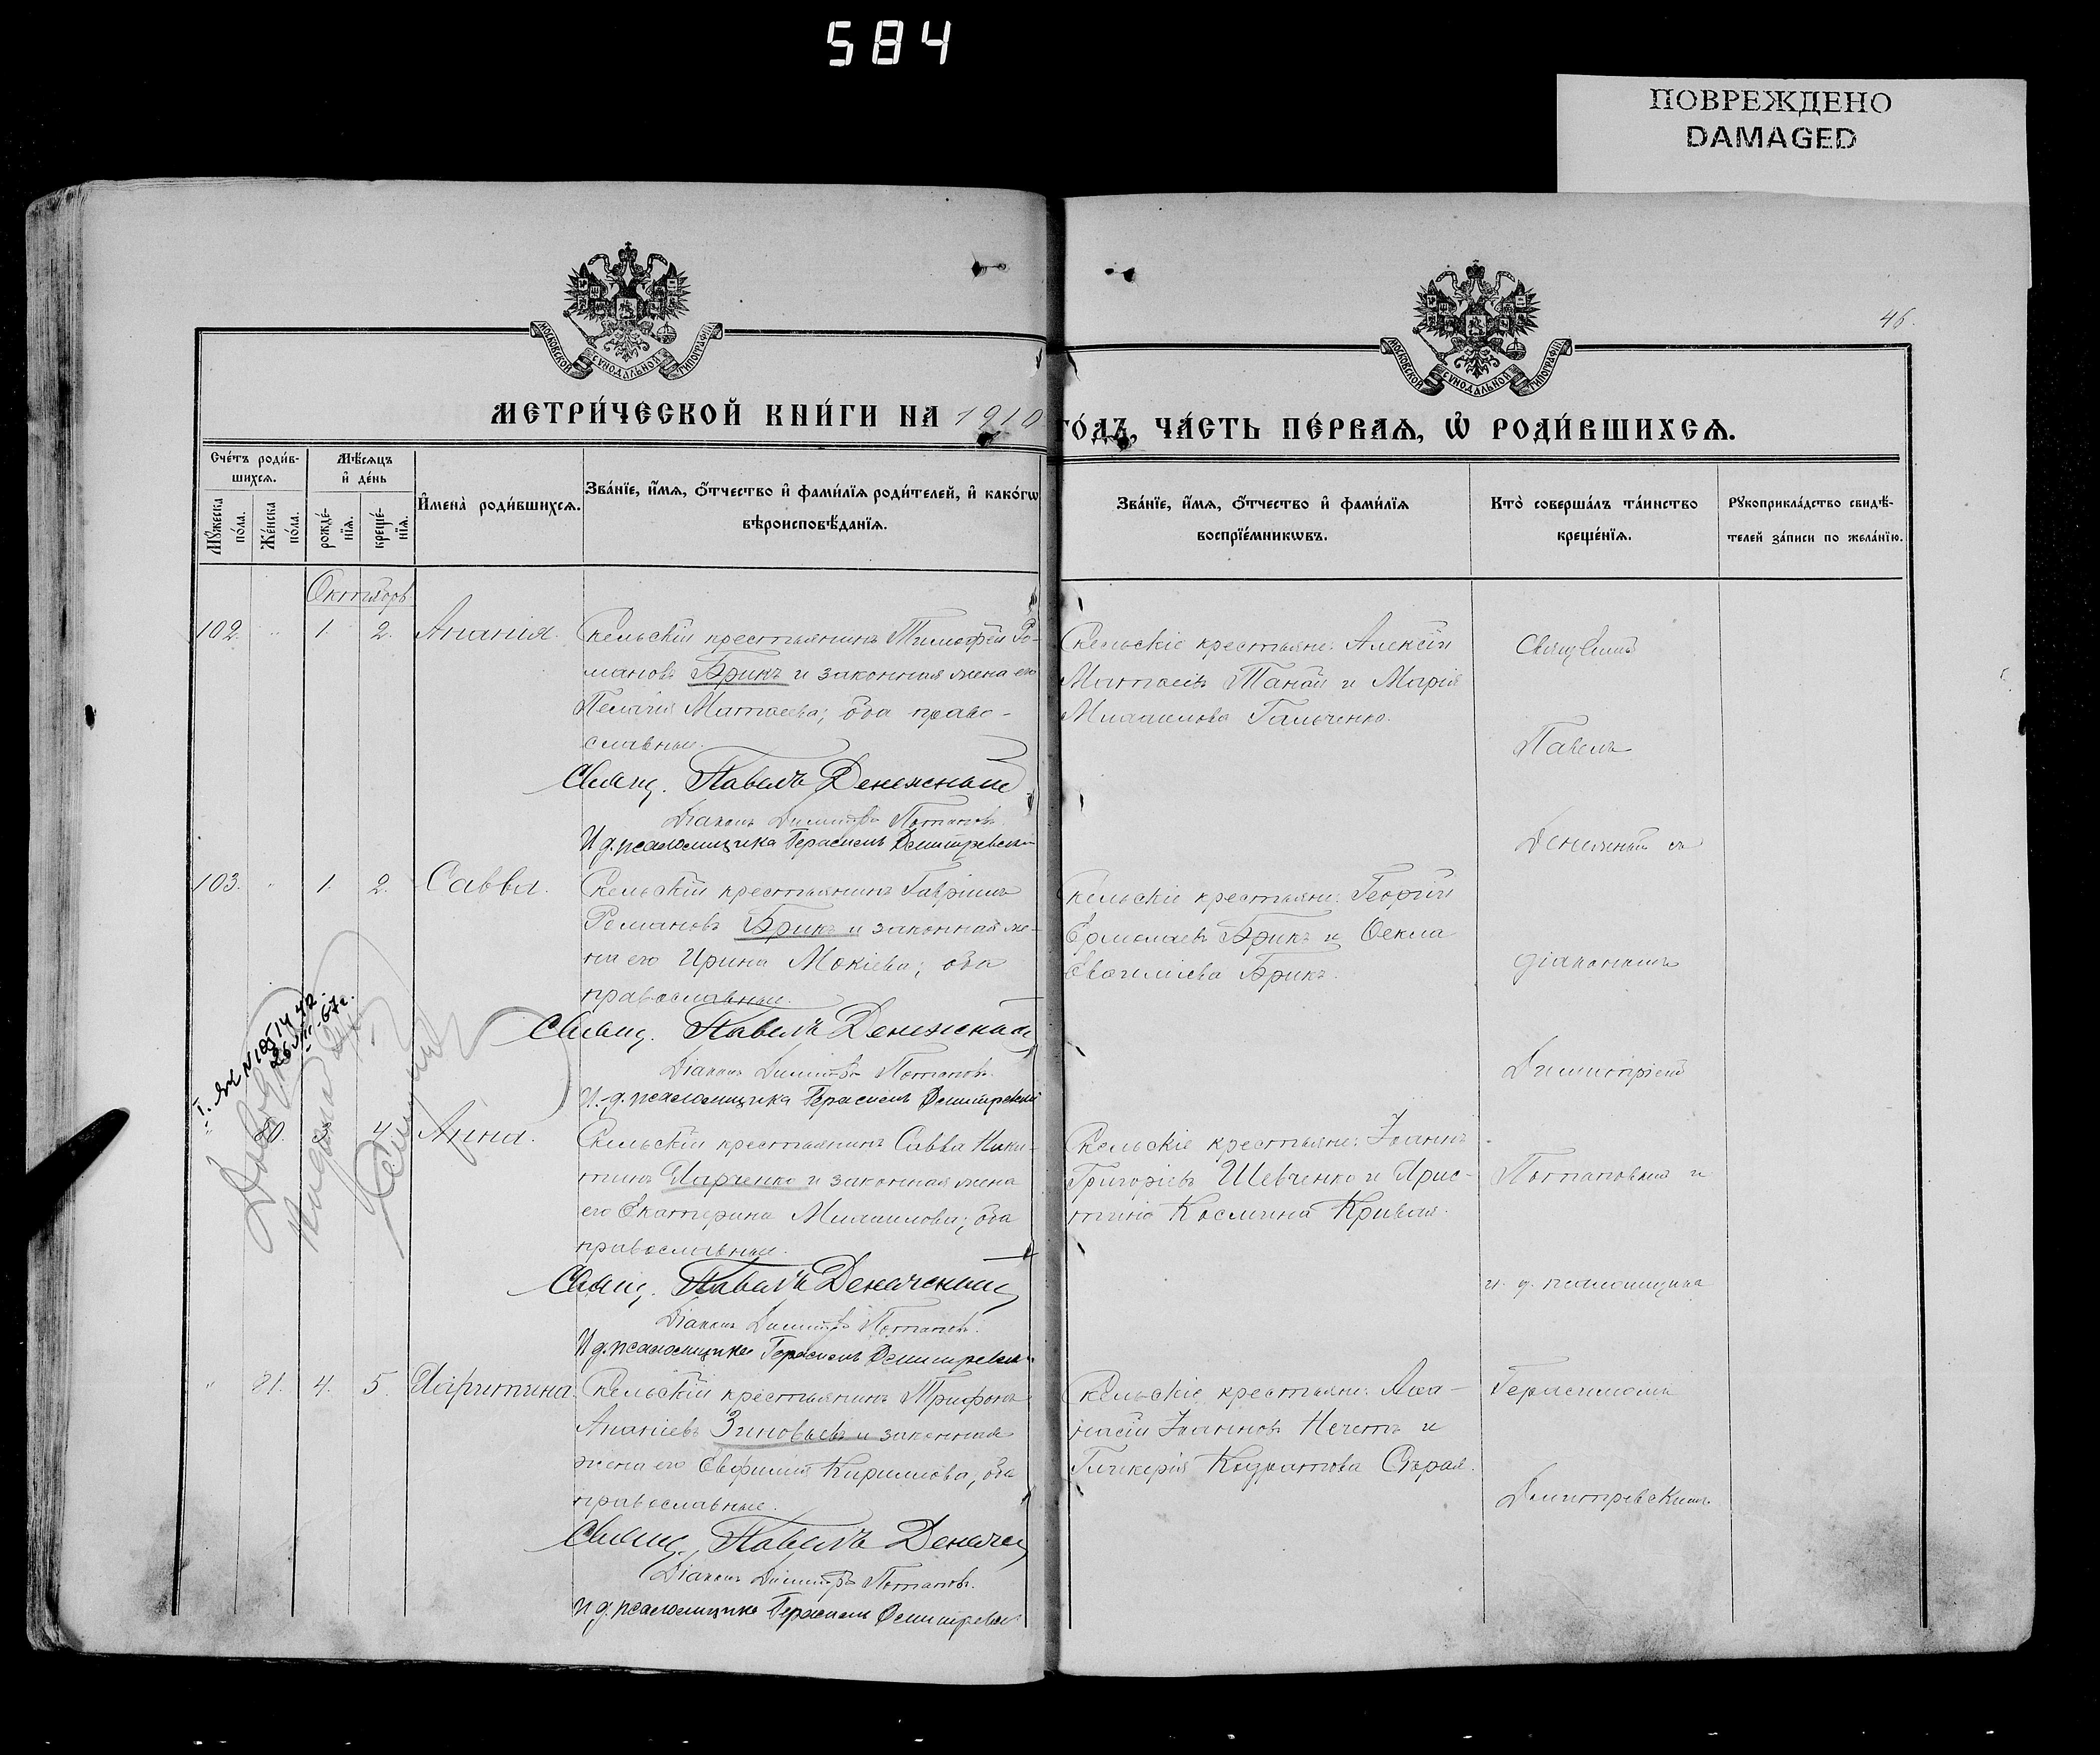 584
ПОВРЕЖДЕНО
DAMAGED
46.
МОСКОВСКОЙ СѴНОДАЛЬНОЙ ТИПОГРАФІИ
МОСКОВСКОЙ СѴНОДАЛЬНОЙ ТИПОГРАФІИ
МЕТРИ́ЧЕСКОЙ КНИ́ГИ НА 1910
ГО́ДЪ, ЧА́СТЬ ПЕ́РВАѦ, Ѡ҆ РОДИ́ВШИХСѦ.
Сче́тъ роди́в-
шихсѧ.
Мѣ́сѧцъ
и҆ де́нь
Мꙋ́жеска
по́ла.
Же́нска
по́ла.
рожде́-
нїѧ.
креще́-
нїѧ.
И҆мена̀ роди́вшихсѧ.
Зва́нїе, и҆́мѧ, ѻ҆́тчество и҆ фами́лїѧ роди́телей, и҆ како́гѡ
вѣроисповѣ́данїѧ.
Зва́нїе, и҆́мѧ, ѻ҆́тчество и҆ фами́лїѧ
воспрїе́мникѡвъ.
Кто̀ соверша́лъ та́инство
креще́нїѧ.
Рꙋкоприкла́дство свидѣ́-
телей за́писи по жела́нїю.
Октябрь
102. " 1. 2. Ананія.
Скельскій крестьянинъ Тимофей Ро-
мановъ Брикъ и законная жена его
Пелагія Матѳеева; оба право-
славные.
Свящ. Павелъ Денежный
Діаконъ Димитрій Потаповъ.
И. д. псаломщика Герасимъ Димитревскій
Скельскіе крестьяне: Алексій
Матѳеевъ Танай и Марія
Михаилова Гальченко.
Священникъ
Павелъ
Денежный съ
103. " 1. 2. Савва.
Скельскій крестьянинъ Гавріилъ
Романовъ Брикъ и законная же-
на его Ирина Мокіева; оба
православные.
Свящ. Павелъ Денежный
Діаконъ Димитрій Потаповъ.
И. д. псаломщика Герасимъ Димитревскій
Скельскіе крестьяне: Георгій
Ермолаевъ Брикъ и Ѳекла
Евѳиміева Брикъ.
діакономъ
Димитріемъ
" 80. 4. Анна.
Скельскій крестьянинъ Савва Ники-
тинъ Марченко и законная жена
его Екатерина Михаилова; оба
православные.
Свящ. Павелъ Денежный
Діаконъ Димитрій Потаповъ.
И. д. псаломщика Герасимъ Димитревскій
Скельскіе крестьяне: Іоаннъ
Григоріевъ Шевченко и Хрис-
тина Космина Кривая.
Потаповымъ и
и. д. псаломщика
" 81. 4. 5. Харитина.
Скельскій крестьянинъ Трифонъ
Ананіевъ Зиновьевъ и законная
жена его Евфимія Кириллова, оба
православные.
Свящ. Павелъ Денеж
Діаконъ Димитрій Потаповъ.
И. д. псаломщика Герасимъ Димитревскій
Скельскіе крестьяне: Аѳа-
насій Іоанновъ Нечетъ и
Гликерія Кодратова Сѣрая.
Герасимомъ
Димитревскимъ.